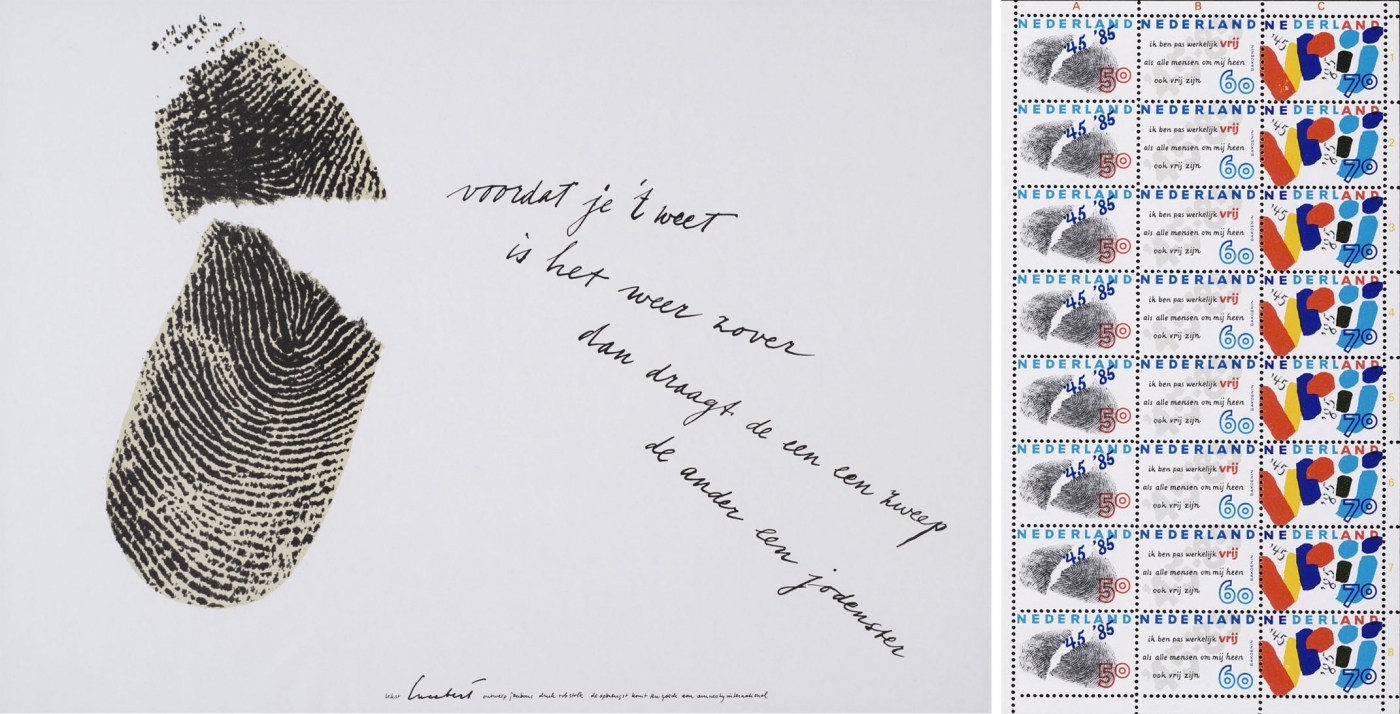 voordat je 't weet
is het weer zover
dan draagt de een een zweep
de ander een jodenster
tekst Lucebert ontwerp jan bons druk rob stolk de opbrengst komt ten goede aan amnesty international
A B C
NEDERLAND
'45 '85
50
NEDERLAND
ik ben pas werkelijk vrij
als alle mensen om mij heen
ook vrij zijn
60
BAKOENIN
NEDERLAND
'45
'85
70
1
NEDERLAND
'45 '85
50
NEDERLAND
ik ben pas werkelijk vrij
als alle mensen om mij heen
ook vrij zijn
60
BAKOENIN
NEDERLAND
'45
'85
70
2
NEDERLAND
'45 '85
50
NEDERLAND
ik ben pas werkelijk vrij
als alle mensen om mij heen
ook vrij zijn
60
BAKOENIN
NEDERLAND
'45
'85
70
3
NEDERLAND
'45 '85
50
NEDERLAND
ik ben pas werkelijk vrij
als alle mensen om mij heen
ook vrij zijn
60
BAKOENIN
NEDERLAND
'45
'85
70
4
NEDERLAND
'45 '85
50
NEDERLAND
ik ben pas werkelijk vrij
als alle mensen om mij heen
ook vrij zijn
60
BAKOENIN
NEDERLAND
'45
'85
70
5
NEDERLAND
'45 '85
50
NEDERLAND
ik ben pas werkelijk vrij
als alle mensen om mij heen
ook vrij zijn
60
BAKOENIN
NEDERLAND
'45
'85
70
6
NEDERLAND
'45 '85
50
NEDERLAND
ik ben pas werkelijk vrij
als alle mensen om mij heen
ook vrij zijn
60
BAKOENIN
NEDERLAND
'45
'85
70
7
NEDERLAND
'45 '85
50
NEDERLAND
ik ben pas werkelijk vrij
als alle mensen om mij heen
ook vrij zijn
60
BAKOENIN
NEDERLAND
'45
'85
70
8